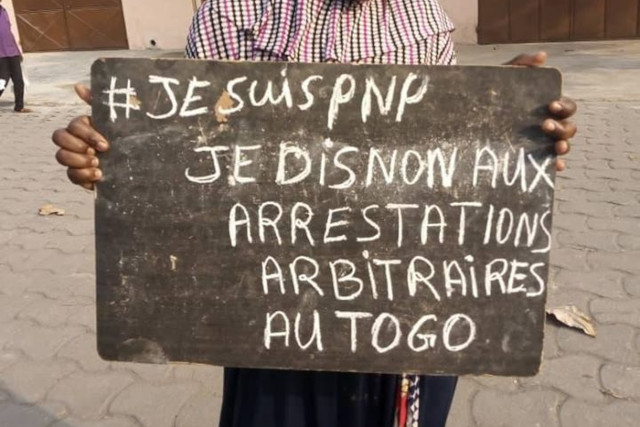 #JE SUIS PNP
JE DIS NON AUX
ARRESTATIONS
ARBITRAIRES
AU TOGO